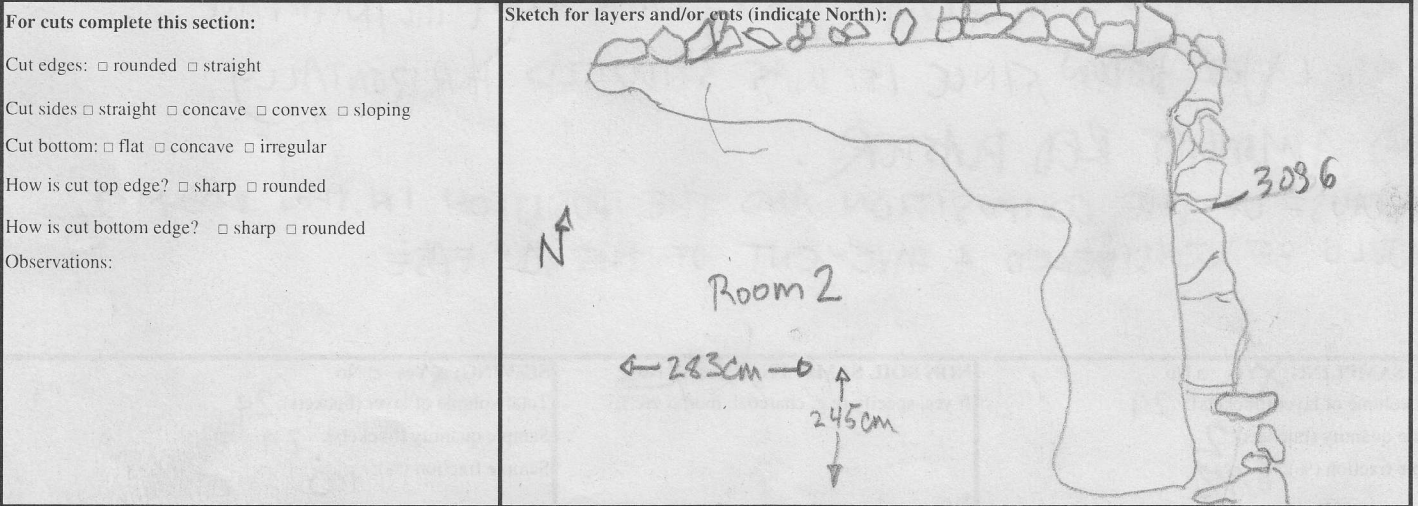 For cuts complete this section:
Cut edges: □ rounded □ straight
Cut sides □ straight □ concave □ convex □ sloping
Cut bottom: □ flat □ concave □ irregular
How is cut top edge? □ sharp □ rounded
How is cut bottom edge? □ sharp □ rounded
Observations:
Sketch for layers and/or cuts (indicate North):
3096
N
Room 2
283cm
245cm